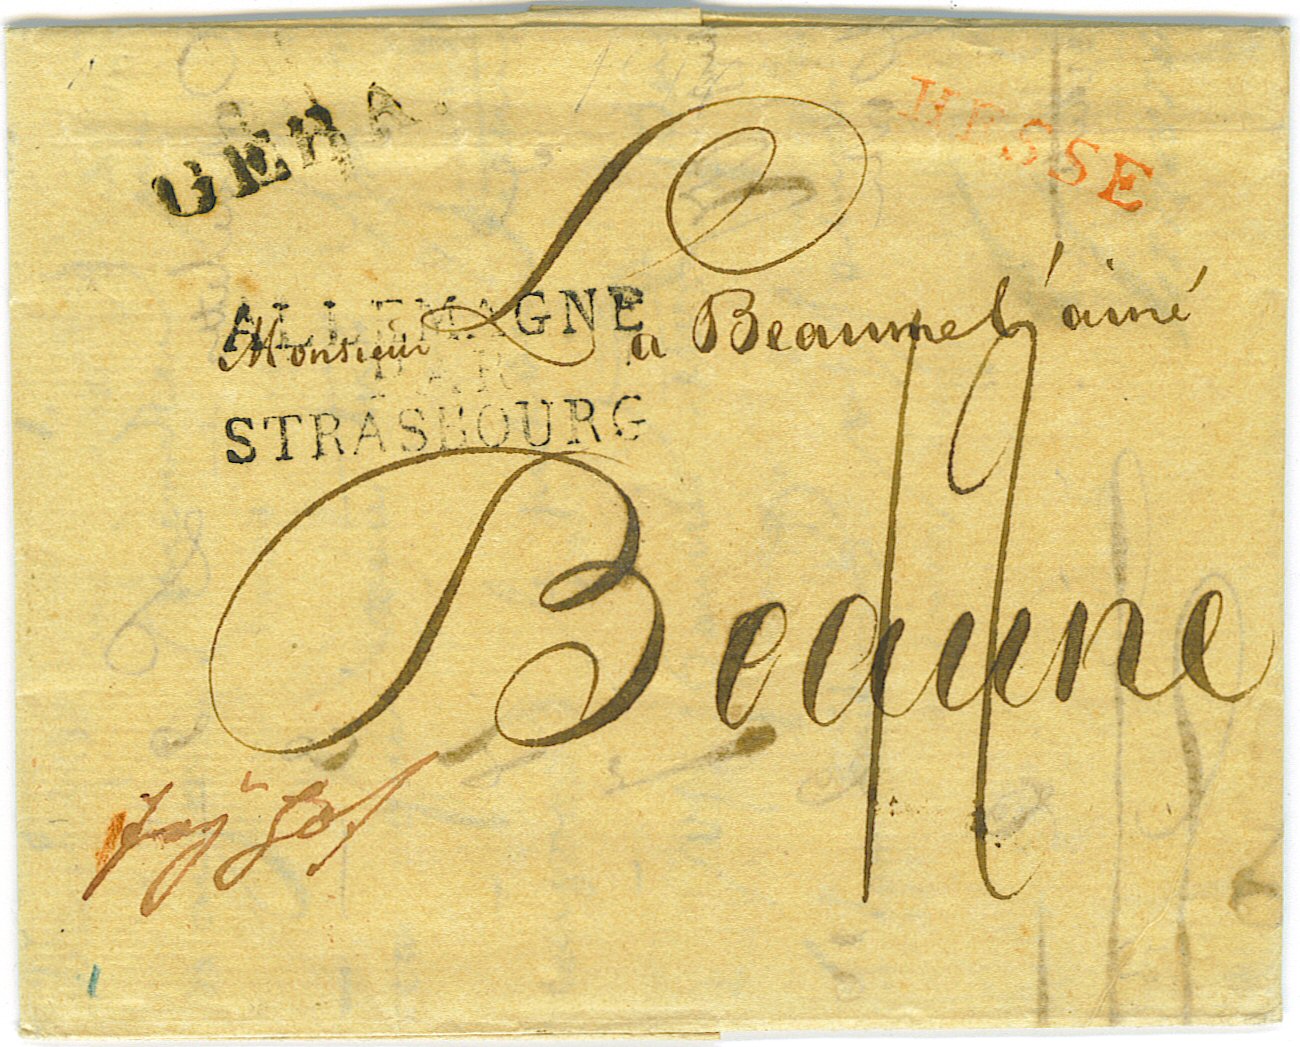 GERA.
HESSE
ALLEMAGNE
PAR
STRASBOURG
Monsieur L a Beaune l'ainé
Beaune